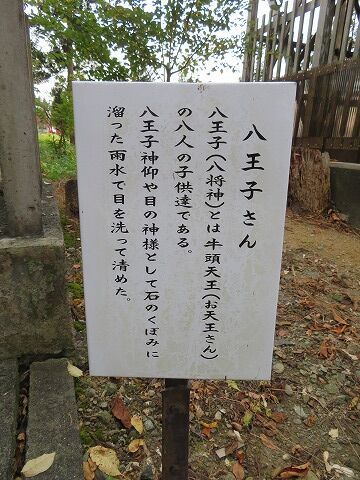 八王子さん
八王子(八将神)とは牛頭天王(お天王さん)
の八人の子供達である。
八王子神仰や目の神様として石のくぼみに
溜った雨水で目を洗って清めた。